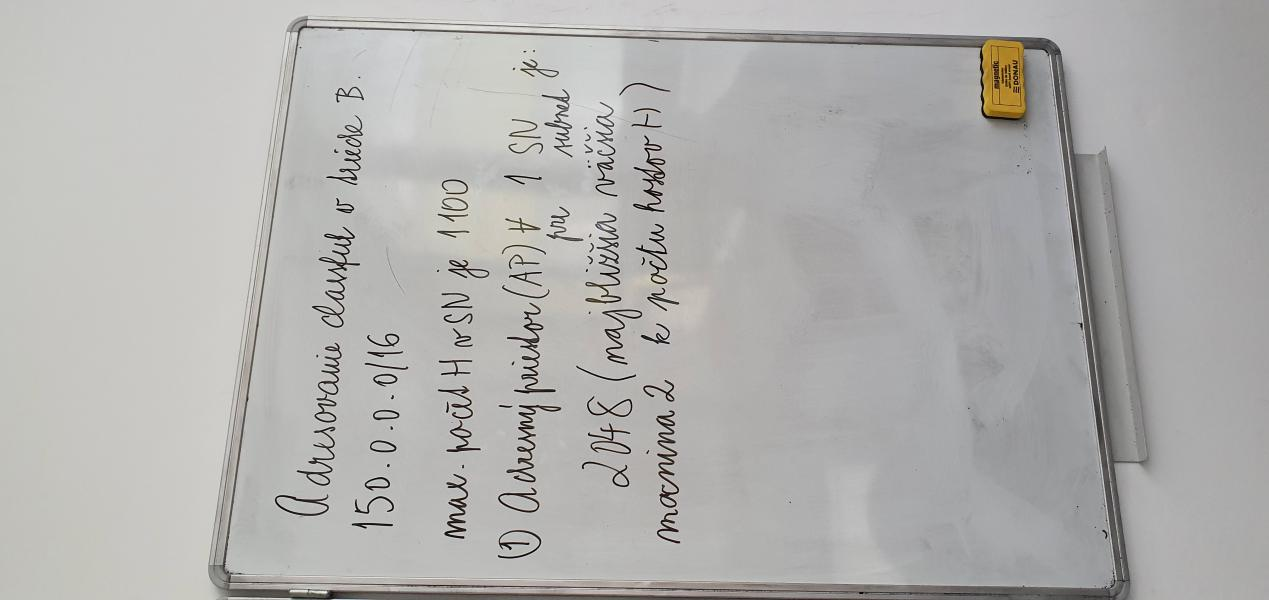 Adresovanie classful v triede B.
150.0.0.0/16
max. počet H v SN je 1100
(1) Adresný priestor (AP) ∀ 1 SN je:
pre subnet
2048 (najbližšia väčšia
mocnina 2 k počtu hostov H)
magnetic
DONAU